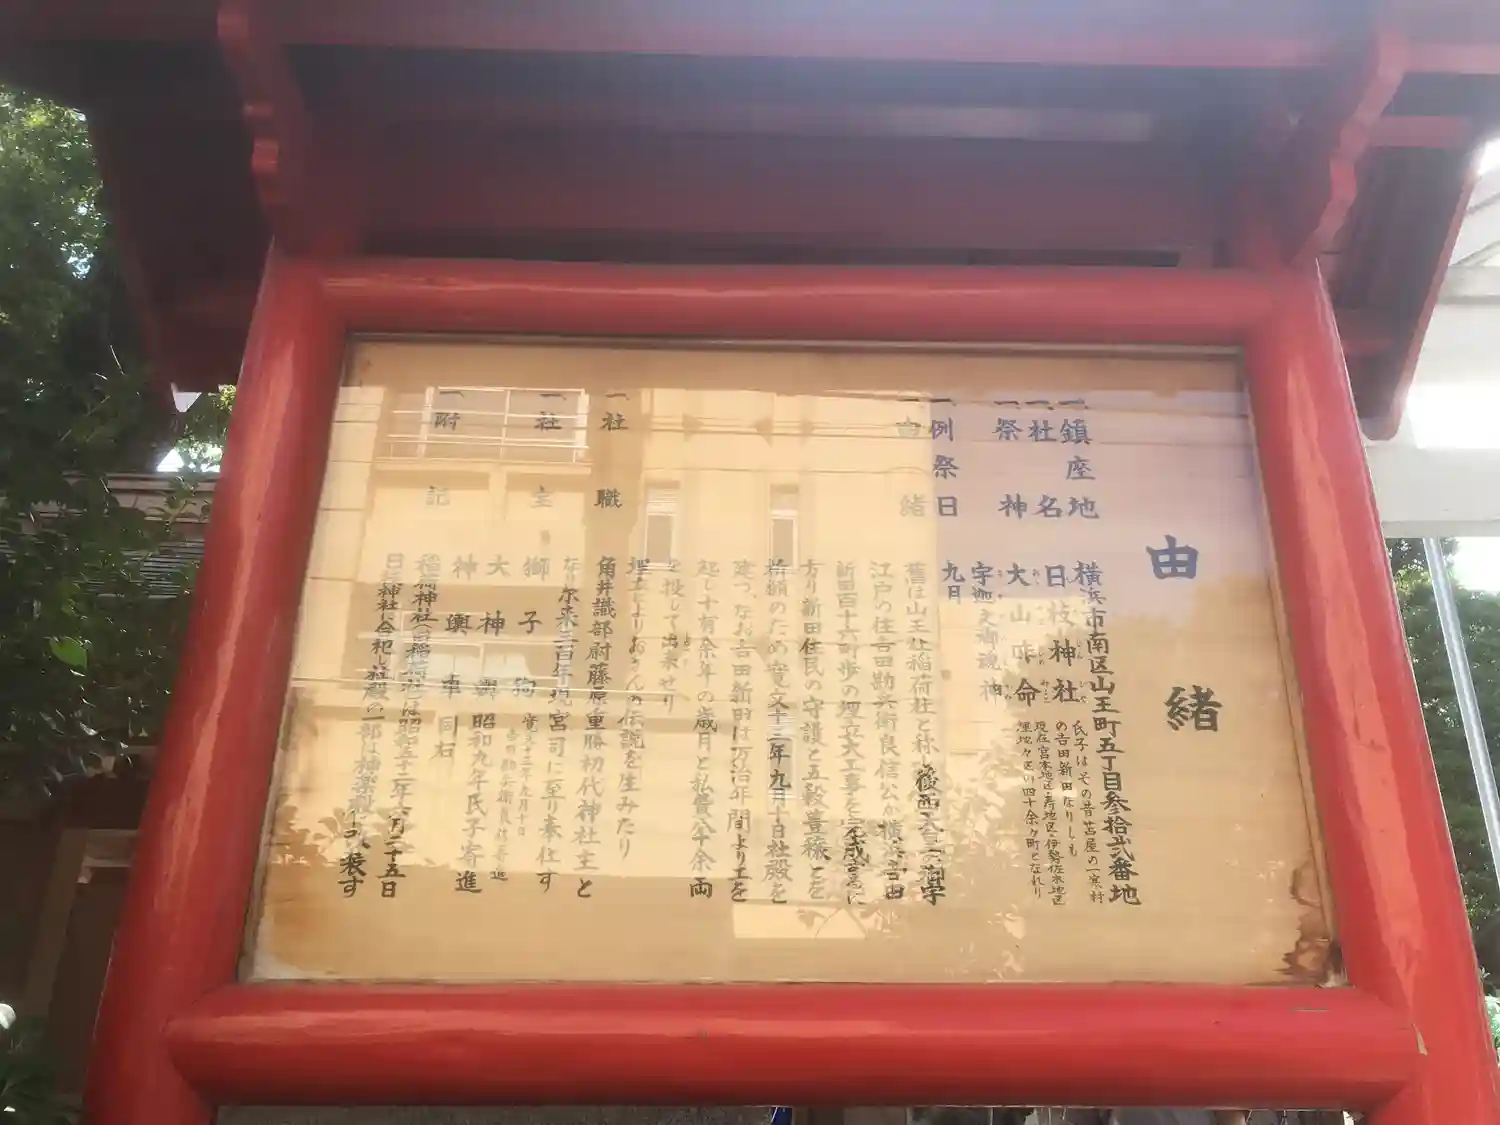 由緒
一鎮座地 横浜市南区山王町五丁目参拾弐番地
一社名 日枝神社 氏子はその昔苫屋の一寒村
の吉田新田なりしも
現在宮本地区・寿地区・伊勢佐木地区
埋地々区の四十余ヶ町となれり
一祭神 大山咋命
宇迦之御魂神
一例祭日 九月
一由緒 舊は山王社稲荷社と称し後西天皇の御宇
江戸の住吉田勘兵衛良信なか横浜吉田
新田百十六町歩の埋立大工事を完成営に
方り新田住民の守護と五穀豊穣とを
祈願のため寛文十三年九月十日社殿を
建つなお吉田新田は万治年間より工を
起し十有余年の歳月と私費八千余両
を投して出来せり
埋立によりおさんの伝説を生みたり
一社職 角井識部尉藤原重勝初代神社主と
なり尓来三百年現宮司に至り奉仕す
一社宝 獅子狗 寛文十三年九月十日
吉田勘兵衛良信寄進
大神輿 昭和九年氏子寄進
神輿車 同右
一附記 稲荷神社(旧稲荷社)は昭和五十二年六月二十五日
日枝神社に合祀し社殿の一部は神楽殿に改装す